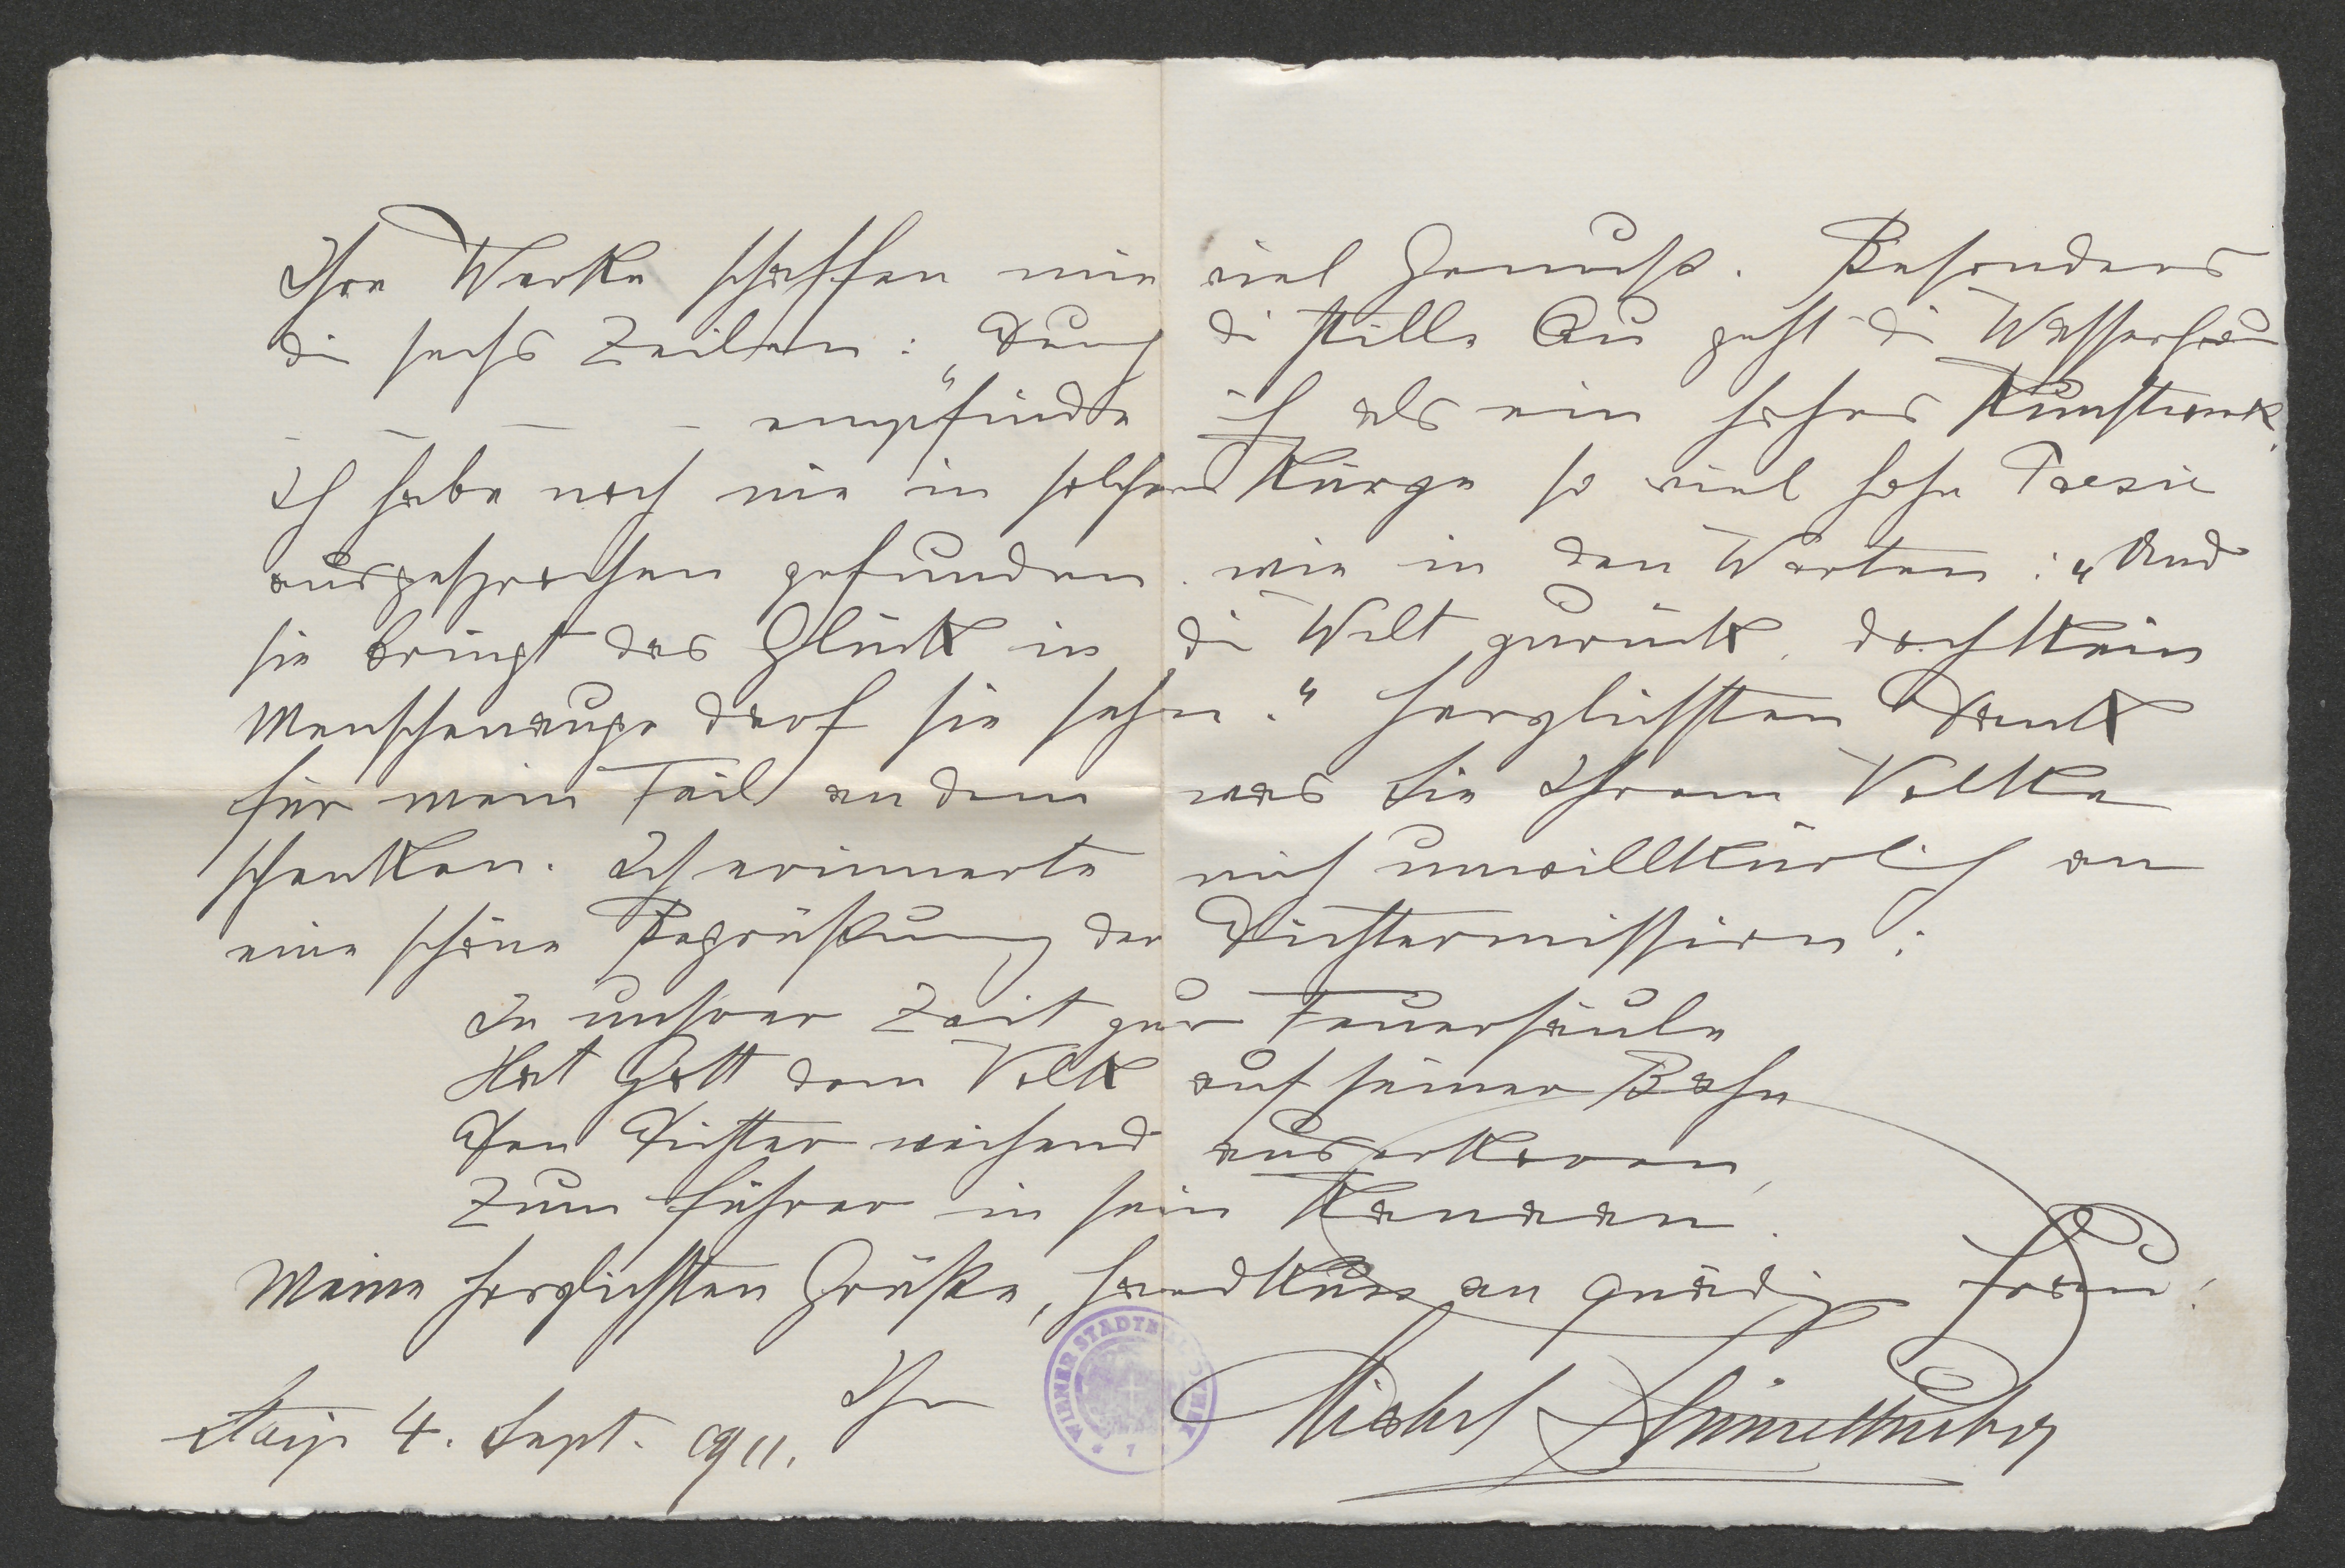 Ihre Werke schaffen mir viel Genuß. Besonders
die sechs Zeilen: „Durch die stille Au geht die Wasserfrau
– – – – –“ empfinde ich als ein hohes Kunstwerk.
Ich habe noch nie in solcher Kürze so viel hohe Poesie
ausgesprochen gefunden wie in den Worten: „Und
sie bringt das Glück in die Welt zurück, doch kein
Menschenauge darf sie sehn.“ Herzlichsten Dank
für mein Teil an dem was Sie Ihrem Volke
schenken. Ich erinnerte mich unwillkürlich an
eine schöne Begrüßung der Dichtermission:
In unsrer Zeit zur Feuersäule
Hat Gott dem Volk auf seiner Bahn
Den Dichter weihend auserkoren,
Zum Führer in sein Kanaan.
Meine herzlichsten Grüße, Handkuss an gnädige Frau!
Ihr
4. Sept. 1911.
WIENER STADTBIBLIOTHEK